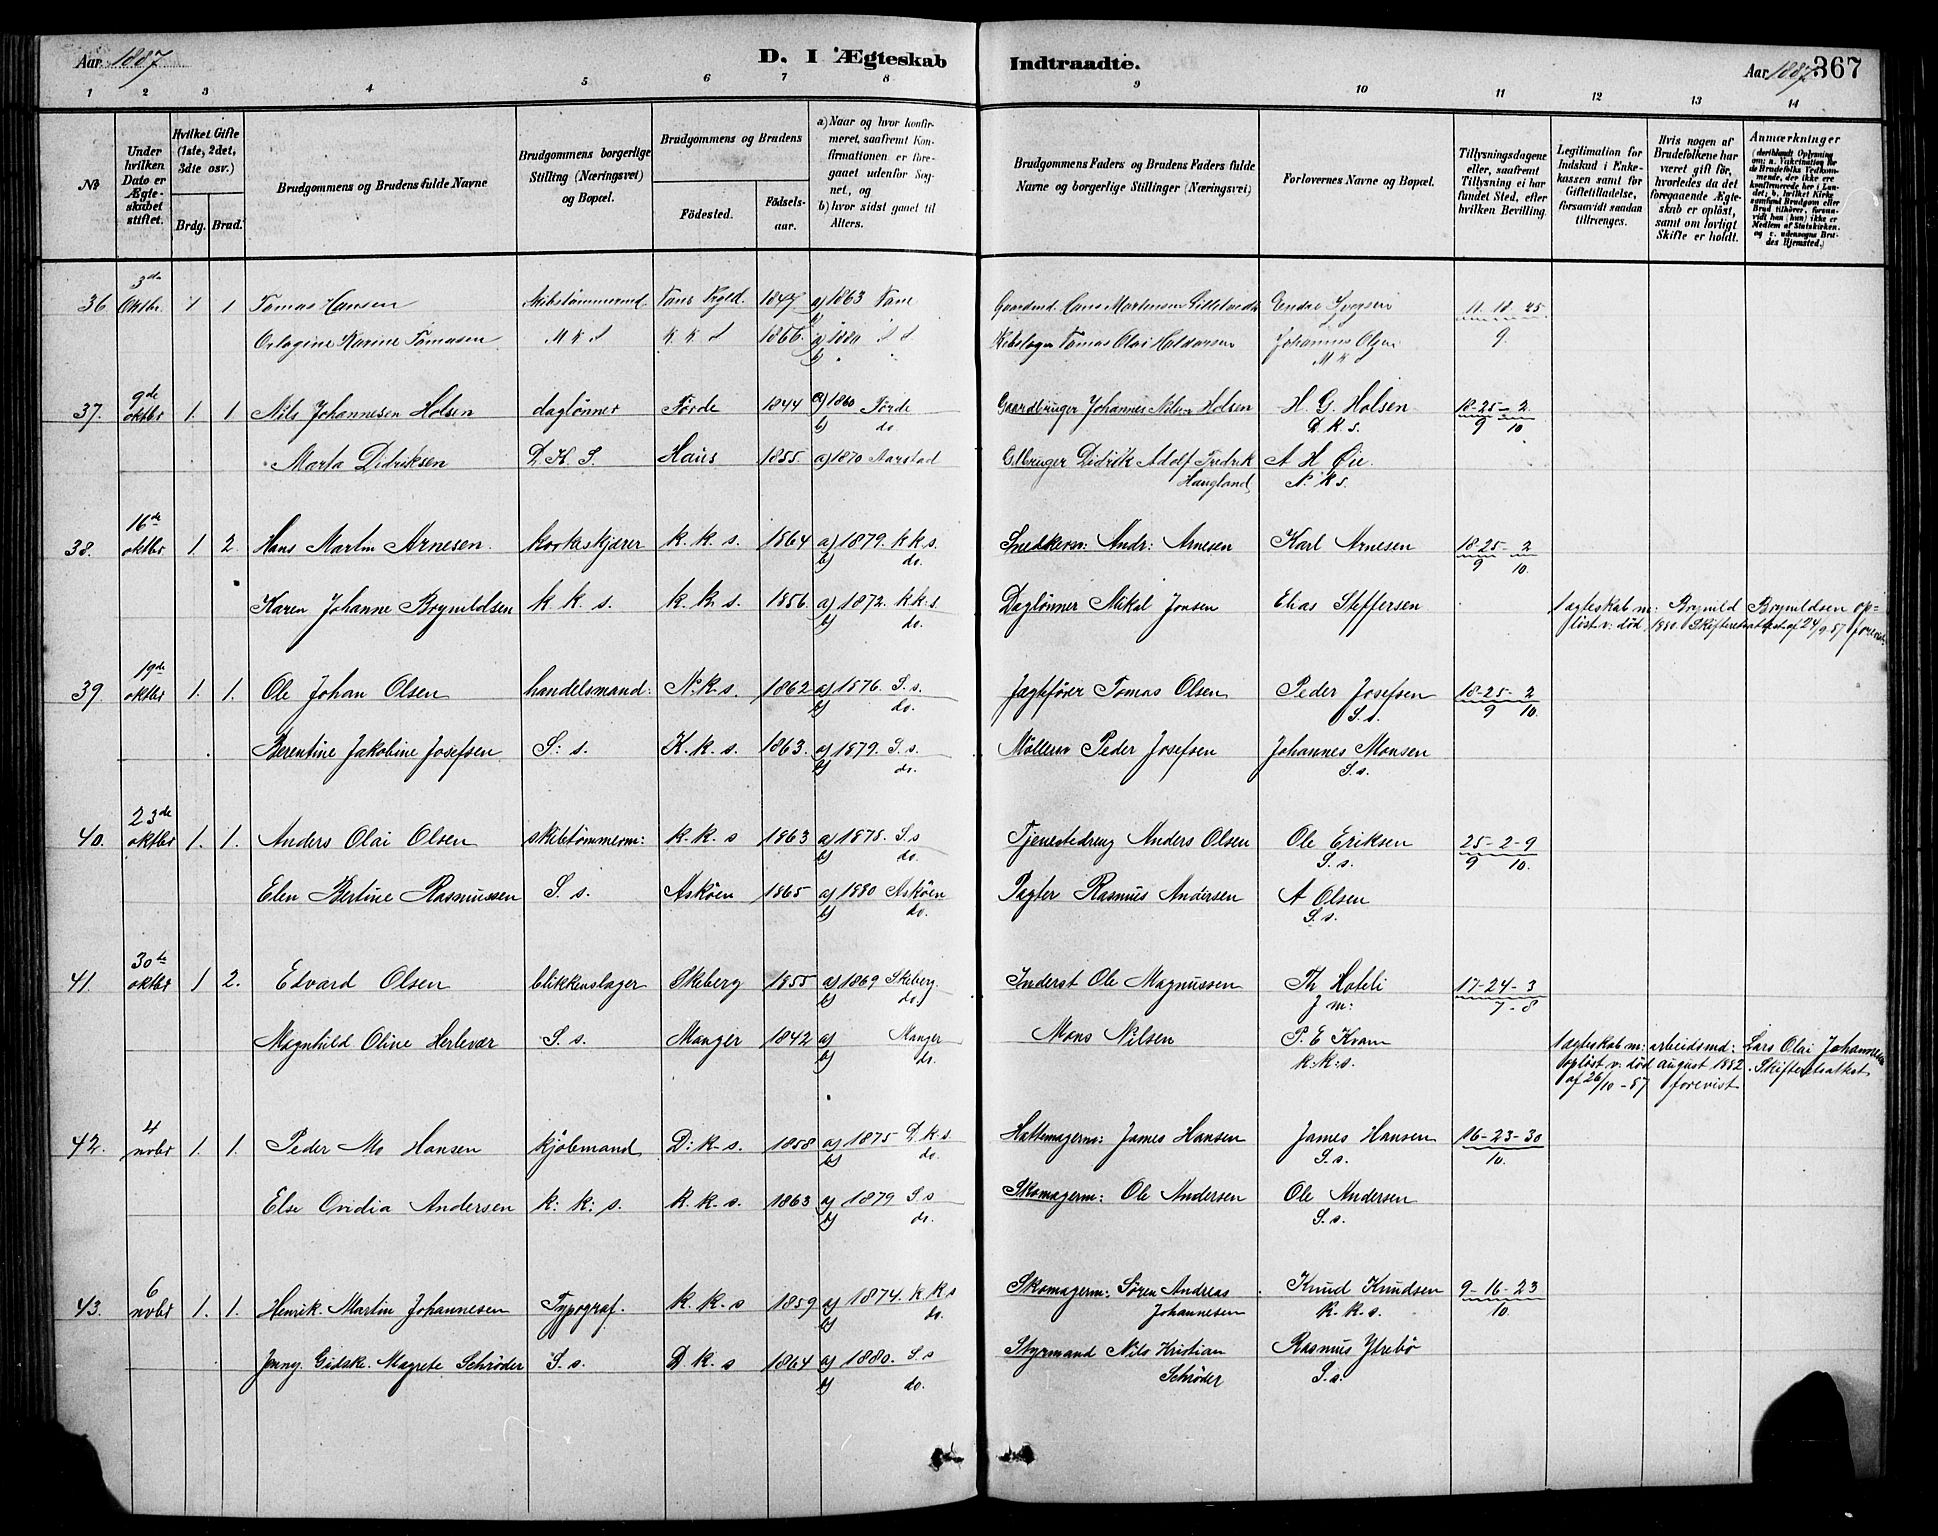 Aar 1887
D. I Ægteskab Indtraadte.
Aar 1887 367
1 2 3 4 5 6 7 8 9 10 11 12 13 14
№
Under hvilken Dato er Ægteskabet stiftet.
Hvilket Gifte (1ste, 2det, 3die osv.)
Brdg. Brud.
Brudgommens og Brudens fulde Navne
Brudgommens borgerlige Stilling (Næringsvei) og Bopæl.
Brudgommens og Brudens
Födested.
Födsels-aar.
a) Naar og hvor konfirmeret, saafremt Konfirmationen er foregaaet udenfor Sognet, og
b) hvor sidst gaaet til Alters.
Brudgommens Faders og Brudens Faders fulde Navne og borgerlige Stillinger (Næringsvei)
Forlovernes Navne og Bopæl.
Tillysningsdagene eller, saafremt Tillysning ei har fundet Sted, efter hvilken Bevilling.
Legitimation for Indskud i Enkekassen samt for Giftetilladelse, forsaavidt saadan tiltrænges.
Hvis nogen af Brudefolkene har været gift för, hvorledes da det foregaaende Ægteskab er oplöst, samt om lovligt Skifte er holdt.
Anmærkninger
36 3de Oktbr. 1 1 Tomas Hansen 1847 a) 1863 Fane 11. 18. 25. 9.
Karine Tomasen 1866. a) 1880 Johannes Olsen
37. 9de oktbr 1. 1 Nils Johannesen Holsen daglönner Förde 1844 a) 1860 Förde b) do. Gaardbruger Johannes Nilsen Holsen H. G. Holsen D. k. s. 18-25-2 9 10
Marta Didriksen D. K. S. Haus 1855. a) 1870 Aarstad Didrik Adolf Fredrik Haugland A H Øie. N. k s.
38. 16de oktbr 1 2. Hans Martin Arnesen. korkeskjærer k. k. s. 1864 a) 1879. k k s. b) do. Snedkerm: Andr: Arnesen Karl Arnesen 18-25-2 9 10.
Karen Johanne Brynildsen k k. s. k. k. s. 1856. a) 1872. k k. s b) do. Daglönner Mikal Jonsen Elias Steffersen 1 ægteskab m: Brynild Brynildsen op-
löst v: död 1880. Skifteretsattest af 24/9 87 forevist.
39. 19de oktbr 1. 1. Ole Johan Olsen handelsmand: N. k. s. 1862 a) 1876. S. s. b) do. Jagtförer Tomas Olsen Peder Josefsen S. s. 18-25-2 9 10.
Berentine Jakobine Josefsen S: s. K. k. s. 1863. a) 1879. S. s b) do. Möllerm Peder Josefsen Johannes Monsen S. s.
40. 23de oktbr 1. 1. Anders Olai Olsen skibstömmerm: k. k. s 1863 a) 1878. S. s b) do. Tjenestedreng Anders Olsen Ole Eriksen S. s. 25-2-9 9 10.
Elen Bertine Rasmussen S. s. Asköen 1865 a) 1880 Asköen b) do. Pagter Rasmus Andersen A Olsen S. s.
41. 30te oktbr 1 2. Edvard Olsen blikkenslager Skeberg 1855 a) 1869 Skeberg. b) do. Inderst Ole Magnussen Th Hateli J m: 17-24-3 7-8
Magnhild Oline Herlevær S. s. Manger 1842 a) Manger b) do. Mons Nilsen P. E Kvam k. k: s. 1 ægteskab m: arbeidsmd: Lars Olai Johannesen
oplöst v: död august 1882. Skifteretsattest
af 26/10 - 87 forevist
42. 4 novbr 1. 1. Peder Mo Hansen kjöbmand D: k. s. 1858 a) 1875 D. k. s b) do. Hattemagerm: James Hansen James Hansen S. s. 16-23-30 10.
Else Ovidia Andersen k: k: s. k. k. s. 1863 a) 1879 S s b) do. Skomagerm: Ole Andersen Ole Andersen S. s.
43. 6 novbr 1. 1. Henrik Martin Johannesen Typograf. k. k. s 1859 a) 1874. k k s b) do. Skomagerm: Sören Andreas Johannesen Knud Knudsen k. k. s. 9-16-23 10.
Jenny Gidsk. Magrete Schröder S. s. D k. s 1864 a) 1880. S. s b) do. Styrmand Nils Kristian Schröder Rasmus Ytrebö S. s.